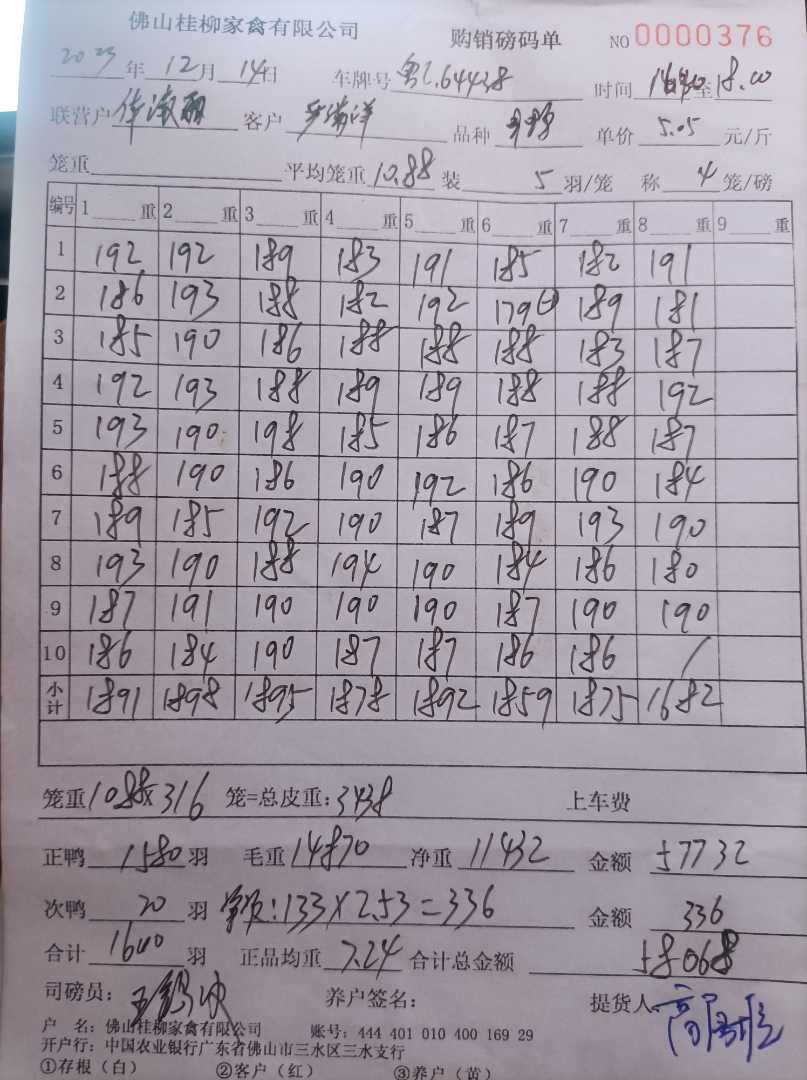 佛山桂柳家禽有限公司 购销磅码单 NO 0000376
2023年12月14日 车牌号 粤L.64438 时间 至18.00
联营户 客户 品种 单价 5.05 元/斤
笼重 平均笼重10.88 装 5 羽/笼 称 4 笼/磅
编号 1 重 2 重 3 重 4 重 5 重 6 重 7 重 8 重 9 重
1 192 192 189 183 191 185 182 191
2 186 193 188 182 192 179 189 181
3 185 190 186 188 188 188 183 187
4 192 193 188 189 189 188 188 192
5 193 190 198 185 186 187 188 187
6 188 190 186 190 192 186 190 184
7 189 185 192 190 187 189 193 190
8 193 190 188 194 190 184 186 180
9 187 191 190 190 190 187 190 190
10 186 184 190 187 187 186 186 /
小计 1891 1898 1895 1878 1892 1859 1875 1682
笼重1088x316 笼=总皮重:3438 上车费
正鸭 1580 羽 毛重14870 净重 11432 金额 57732
次鸭 20 羽 :133X2.53=336 金额 336
合计 1600 羽 正品均重 7.24 合计总金额 58068
司磅员: 养户签名: 提货人
户 名: 佛山桂柳家禽有限公司 账号: 444 401 010 400 169 29
开户行: 中国农业银行广东省佛山市三水区三水支行
①存根(白) ②客户(红) ③养户(黄)